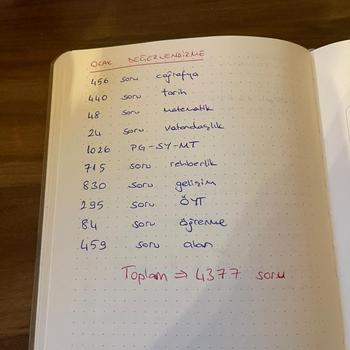 OCAK DEĞERLENDİRME
456 soru coğrafya
440 soru tarih
48 soru matematik
24 soru vatandaşlık
1026 PG-SY-MT
715 soru rehberlik
830 soru gelişim
295 soru ÖYT
84 soru öğrenme
459 soru alan
Toplam ⇒ 4377 soru